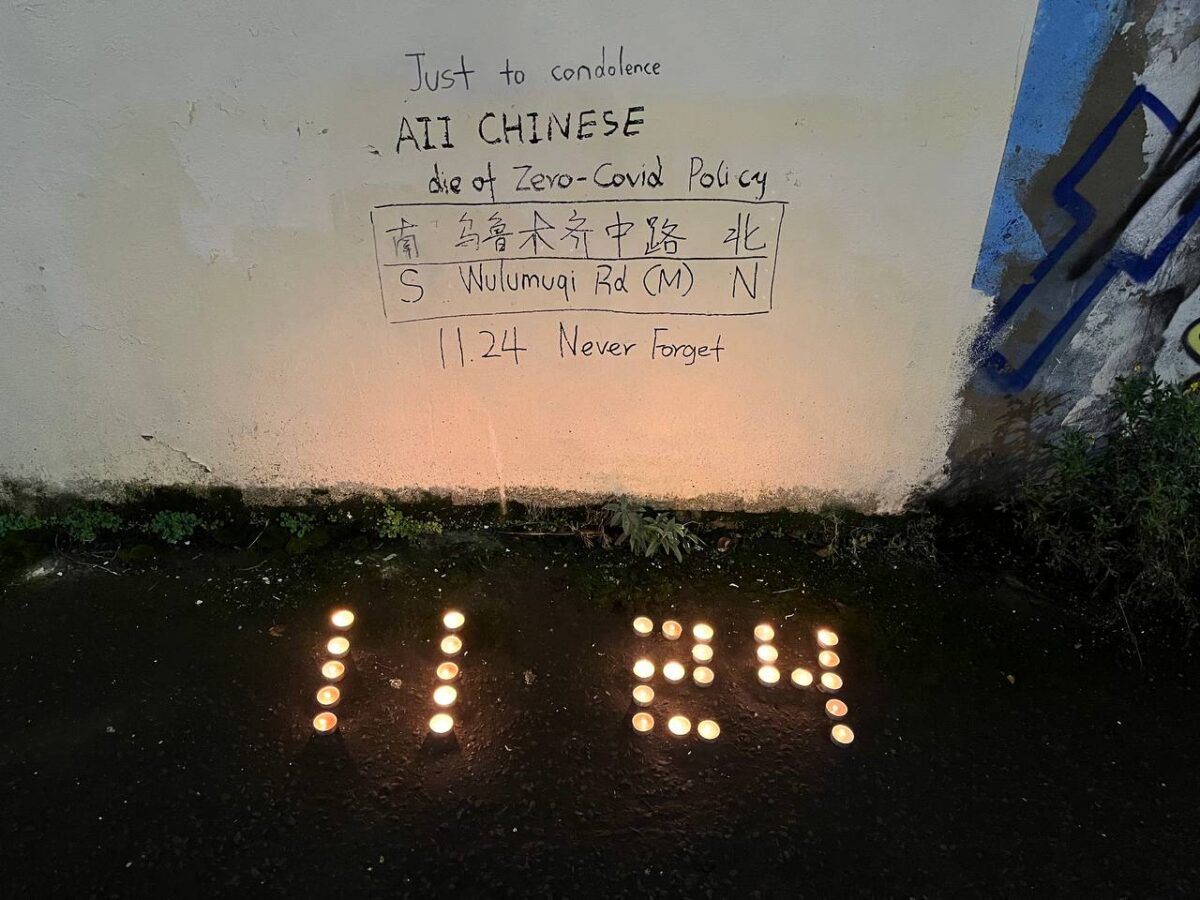 Just to condolence
AII CHINESE
die of Zero-Covid Policy
南 乌鲁木齐中路 北
S Wulumuqi Rd (M) N
11.24 Never Forget
11 24